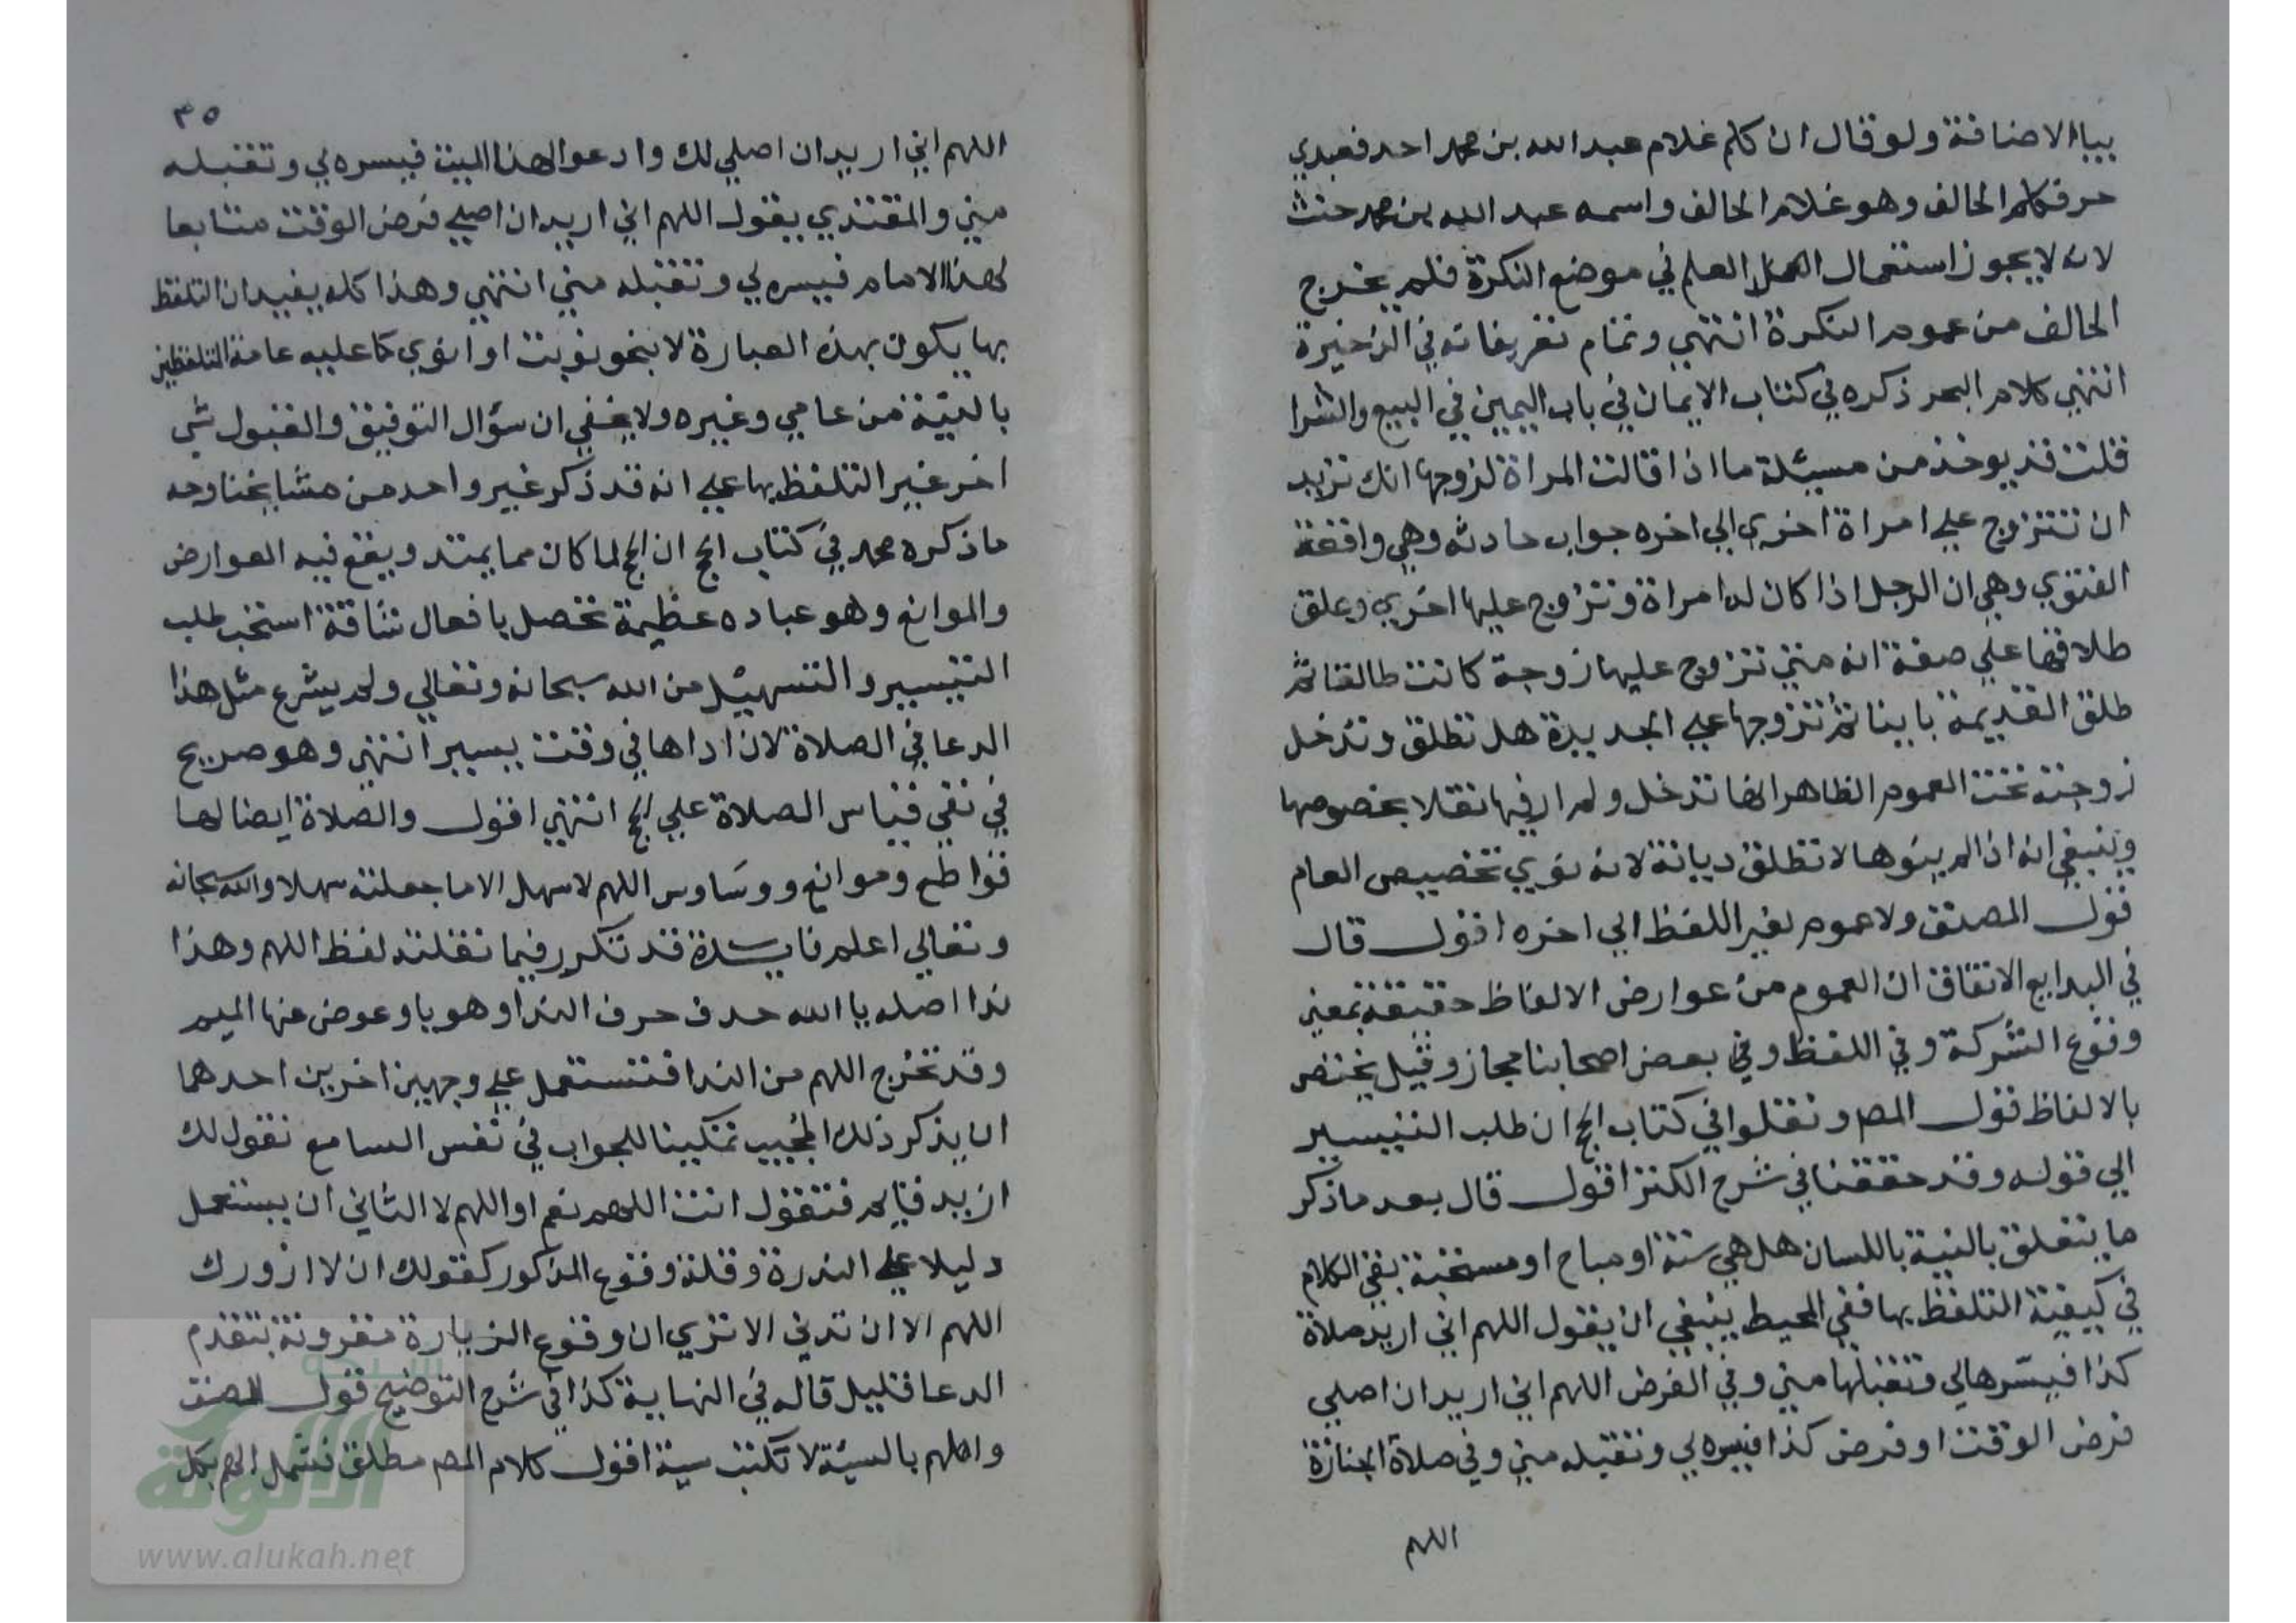 بياالاضافة ولو قال ان كلم غلام عبد الله بن محمد احد فعبدي
حر فكلم الحالف وهو غلام الحالف واسمه عبد الله بن محمد حنث
لانه لا يجوز استعمال العلم في موضع النكرة فلم يخرج
الحالف من عموم النكرة انتهي وتمام تفريعاته في الذخيرة
انتهي كلام البحر ذكره في كتاب الايمان في باب اليمين في البيع والشرا
قلت قد يوخذ من مسئلة ما اذا قالت المراة لزوجها انك تريد
ان تتزوج علي امراة اخري الي اخره جواب حادثه وهي واقعة
الفتوي وهي ان الرجل اذا كان له امراة وتزوج عليها اخري وعلق
طلاقها علي صفة انه متي تزوج عليها زوجة كانت طالقا ثم
طلق القديمة باينا ثم تزوجها علي الجديدة هل تطلق وتدخل
زوجته تحت العموم الظاهر انها تدخل ولم ار فيها نقلا بخصوصها
وينبغي انه اذا لم ينوها لا تطلق ديانة لانه نوي تخصيص العام
قول المصنف ولا عموم لغير اللفظ الي اخره اقول قال
في البدايع الاتفاق ان العموم من عوارض الالفاظ حقيقة بمعني
وقوع الشركة وفي اللفظ وفي بعض اصحابنا مجاز وقيل يختص
بالالفاظ قول المص ونقلوا في كتاب الحج ان طلب التيسير
الي قوله وقد حققنا في شرح الكنز اقول قال بعد ما ذكر
ما يتعلق بالنية باللسان هل هي سنة او مباح او مستحبة بقي الكلام
في كيفية التلفظ بها ففي المحيط ينبغي ان يقول اللهم اني اريد صلاة
كذا فيسّرها لي وتقبلها مني وفي الفرض اللهم اني اريد ان اصلي
فرض الوقت او فرض كذا فيسره لي وتقبله مني وفي صلاة الجنازة
اللهم
٣٥
اللهم اني اريد ان اصلي لك وادعوا لهذا الميت فيسره لي وتقبله
مني والمقتدي يقول اللهم اني اريد ان اصلي فرض الوقت متابعا
لهذا الامام فيسره لي وتقبله مني انتهي وهذا كله يفيد ان التلفظ
بها يكون بهذه العبارة لا بنحو نويت او انوي كما عليه عامة المتلفظين
بالنيّة من عامي وغيره ولا يخفي ان سؤال التوفيق والقبول شي
اخر غير التلفظ بها علي انه قد ذكر غير واحد من مشايخنا وجه
ما ذكره محمد في كتاب الحج ان الحج لما كان مما يمتد ويقع فيه العوارض
والموانع وهو عباده عظيمة تحصل بافعال شاقة استحب طلب
التيسير والتسهيل من الله سبحانه وتعالي ولم يشرع مثل هذا
الدعا في الصلاة لان اداها في وقت يسير انتهي وهو صريح
في نفي قياس الصلاة علي الحج انتهي اقول والصلاة ايضا لها
قواطع وموانع ووساوس اللهم لا سهل الا ما جعلته سهلا والله سبحانه
وتعالي اعلم فايدة قد تكرر فيما نقلته لفظ اللهم وهذا
ندا اصله يا الله حدف حرف الندا وهو يا وعوض عنها الميم
وقد تخرج اللهم من الندا فتستعمل علي وجهين اخرين احدهما
ان يذكر ذلك المجيب تمكينا للجواب في نفس السامع نقول لك
ازيد قايم فتقول انت اللهم نعم او اللهم لا الثاني ان يستعمل
دليلا علي الندرة وقلة وقوع المذكور كقولك ان لا ازورك
اللهم الا ان تدني الا تري ان وقوع الزيارة مقرونة بتقدم
الدعا قليل قاله في النهاية كذا في شرح التوضيح قول المصنف
وان هم بالسيئة لا تكتب سية اقول كلام المص مطلق فشمل الهم بكل
الألوكة
www.alukah.net